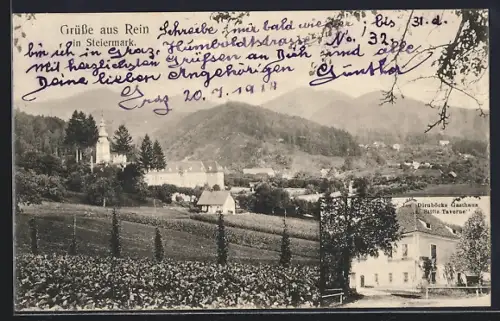 Grüße aus Rein
in Steiermark.
Schreibe mir bald wieder bis 31. d.
bin ich in Graz, Humboldtstrasse No. 32.
Mit herzlichsten Grüssen an Dich und alle
Deine lieben Angehörigen Günther
Graz 20.7.19
Jos. Dirnböcks Gasthaus
Taverne"